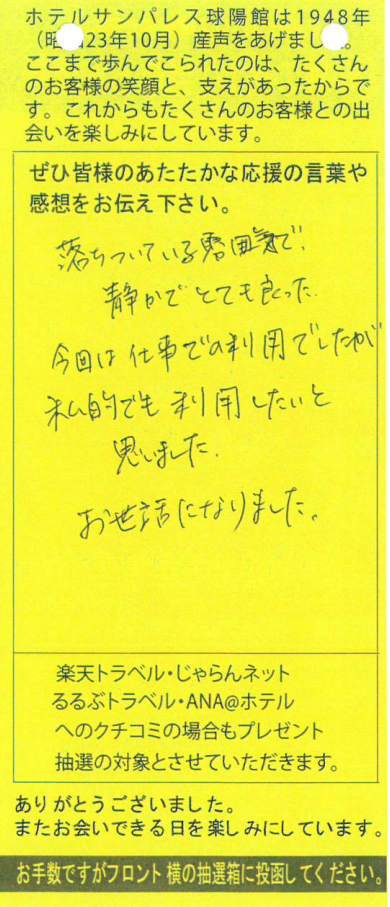 ホテルサンパレス球陽館は1948年
（昭和23年10月）産声をあげました。
ここまで歩んでこられたのは、たくさん
のお客様の笑顔と、支えがあったからで
す。これからもたくさんのお客様との出
会いを楽しみにしています。
ぜひ皆様のあたたかな応援の言葉や
感想をお伝え下さい。
落ちついている雰囲気で、
静かでとても良った.
今回は仕事での利用でしたが
私的でも利用したいと
思いました.
お世話になりました。
楽天トラベル・じゃらんネット
るるぶトラベル・ANA@ホテル
へのクチコミの場合もプレゼント
抽選の対象とさせていただきます。
ありがとうございました。
またお会いできる日を楽しみにしています。
お手数ですがフロント横の抽選箱に投函してください。